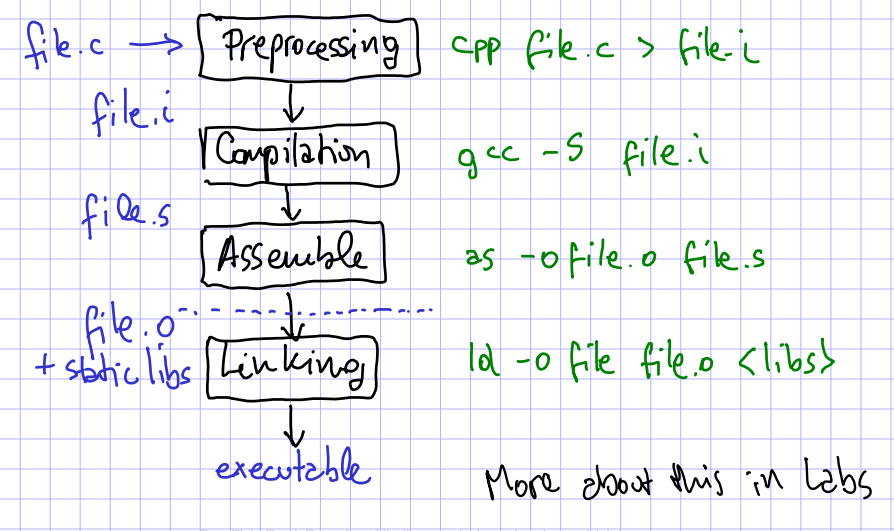 file.c Preprocessing cpp file.c > file.i
file.i
Compilation gcc -S file.i
file.s
Assemble as -o file.o file.s
file.o
+ static libs Linking ld -o file file.o <libs>
executable
More about this in Labs